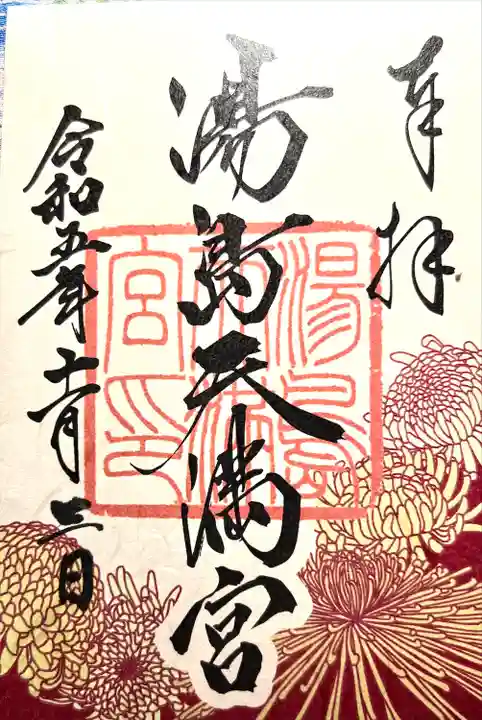 奉拝
湯島天満宮
湯島天満宮印
令和五年十一月三日